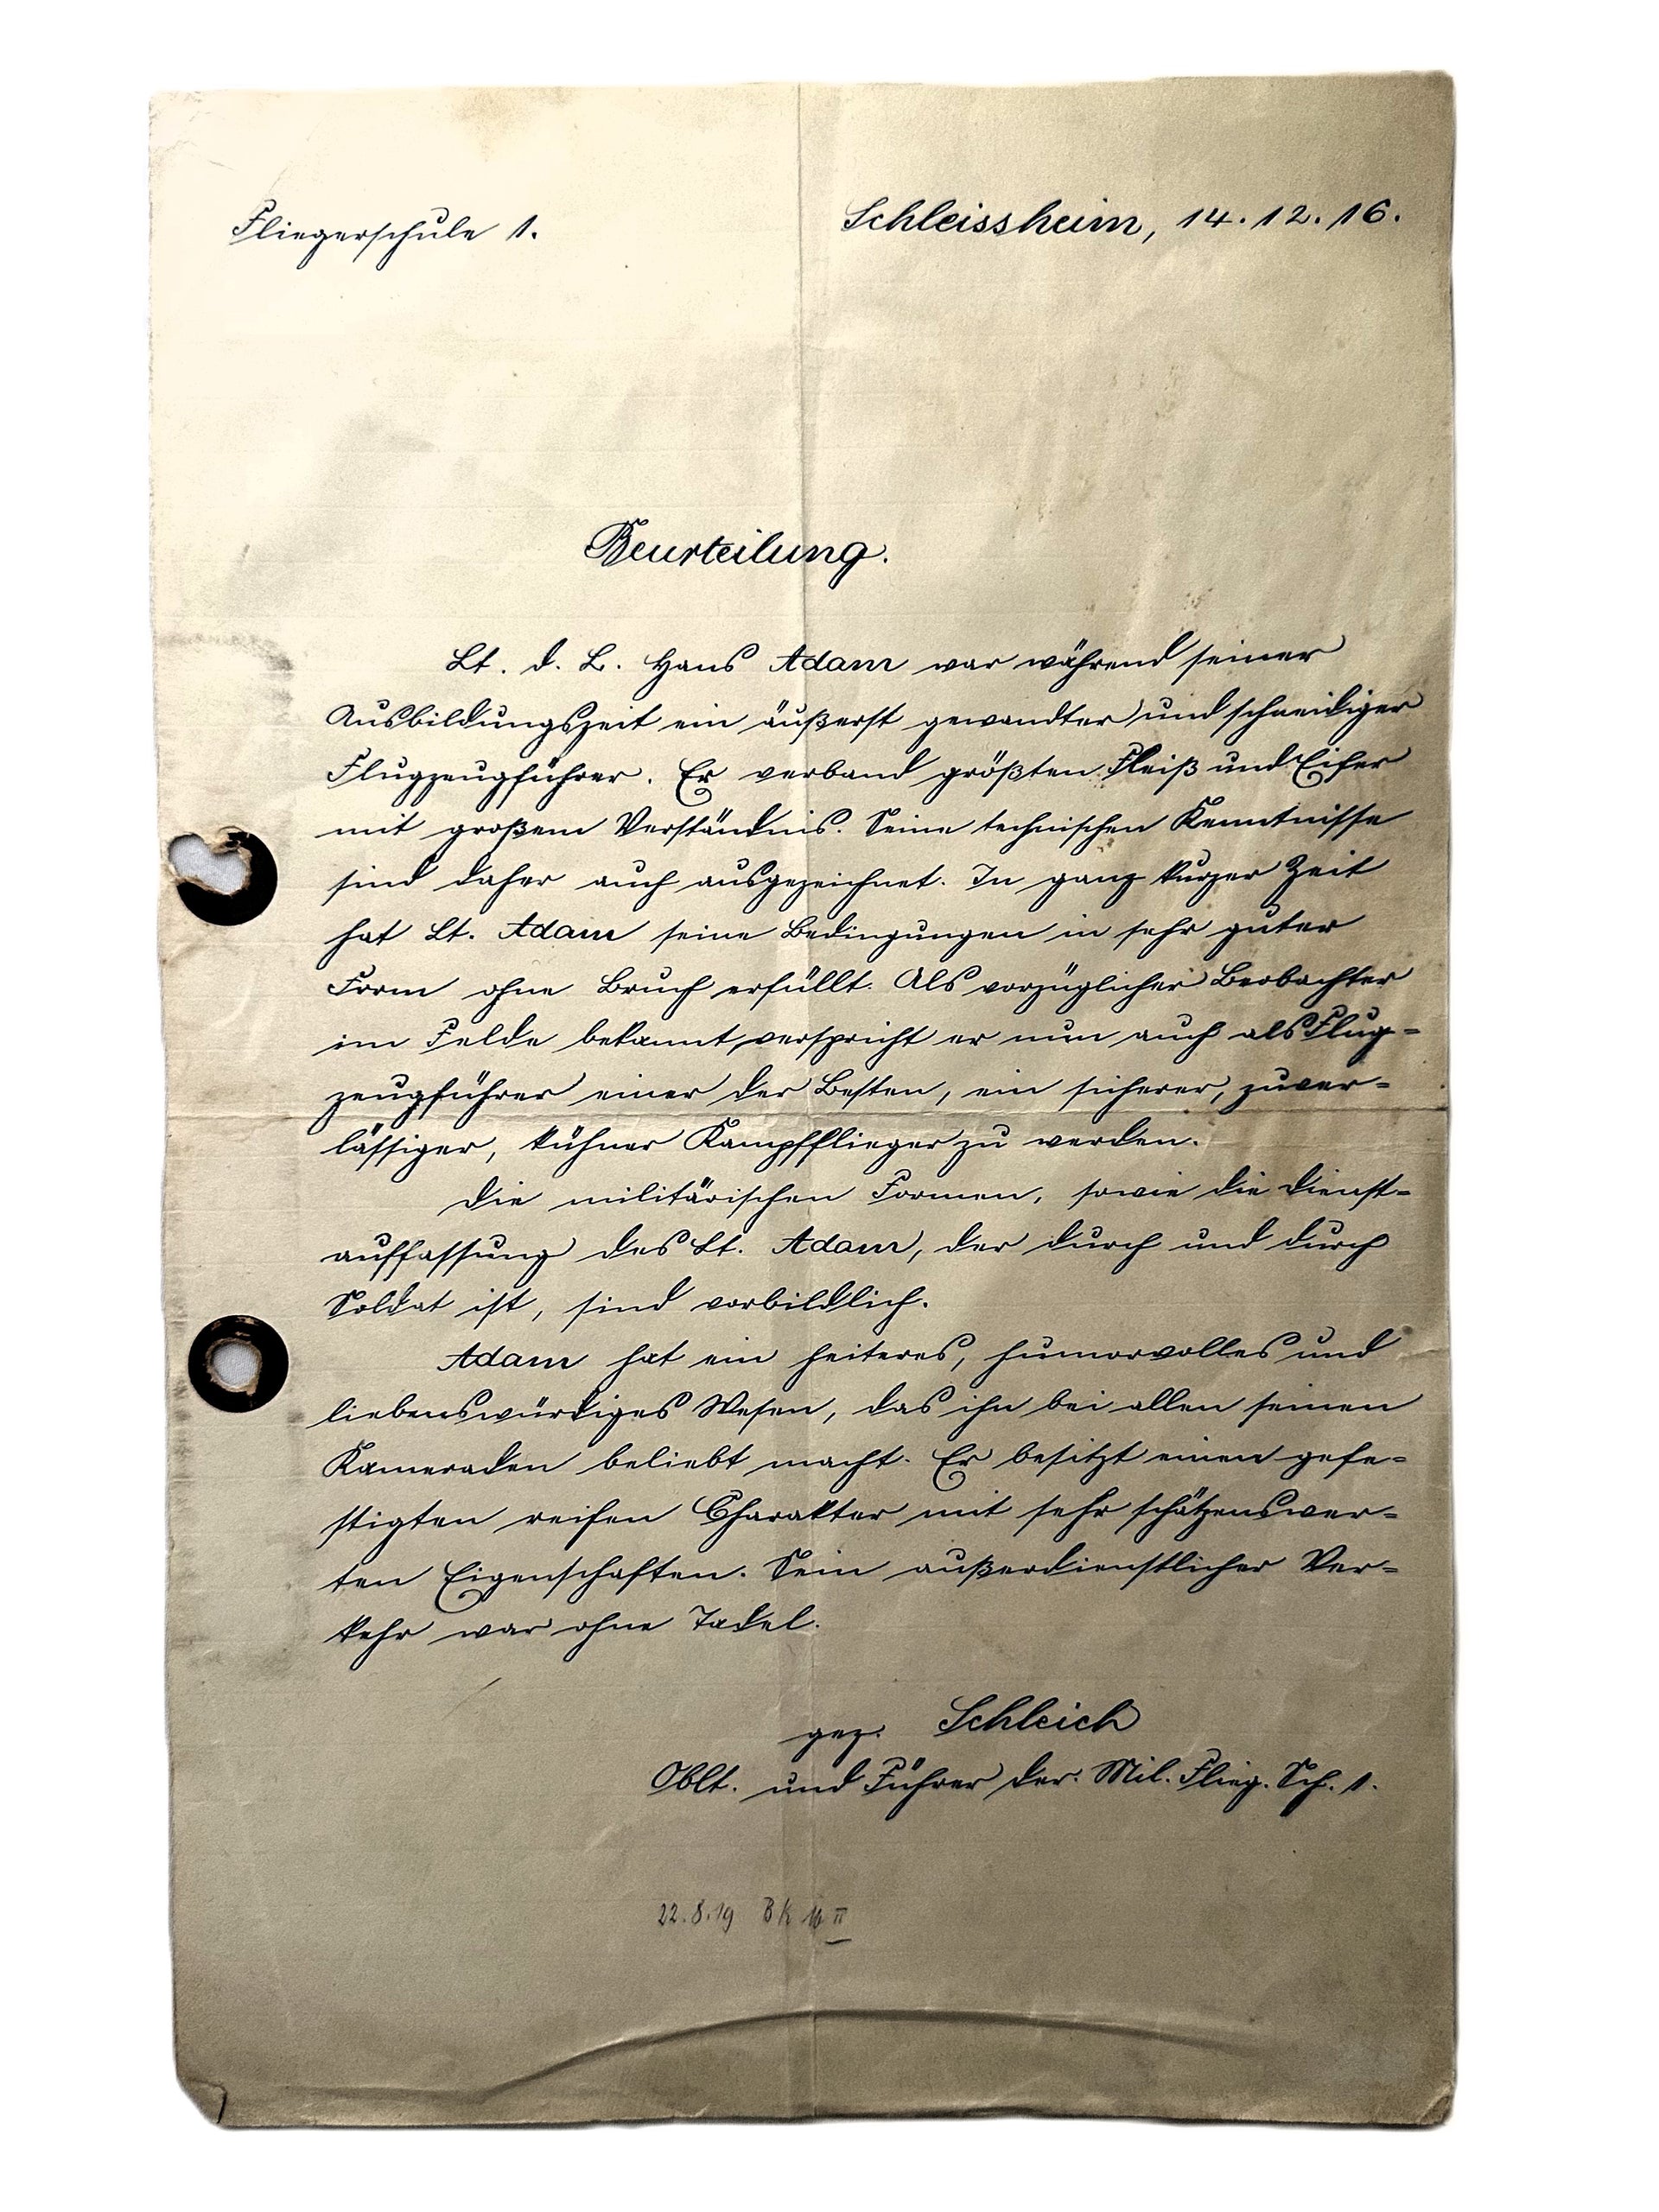 Fliegerschule 1.
Schleissheim, 14.12.16.
Beurteilung.
Lt. d. L. Hans Adam war während seiner
Ausbildungszeit ein äußerst gewandter und schneidiger
Flugzeugführer. Er verband größten Fleiß und Eifer
mit großem Verständnis. Seine technischen Kenntnisse
sind daher auch ausgezeichnet. In ganz kurzer Zeit
hat Lt. Adam seine Bedingungen in sehr guter
Form ohne Bruch erfüllt. Als vorzüglicher Beobachter
im Felde bekannt, verspricht er nun auch als Flug=
zeugführer einer der Besten, ein sicherer, zuver=
lässiger, kühner Kampfflieger zu werden.
Die militärischen Formen, sowie die Dienst=
auffassung des Lt. Adam, der durch und durch
Soldat ist, sind vorbildlich.
Adam hat ein heiteres, humorvolles und
liebenswürdiges Wesen, das ihn bei allen seinen
Kameraden beliebt macht. Er besitzt einen gefe=
stigten reifen Charakter mit sehr schätzenswer=
ten Eigenschaften. Sein außerdienstlicher Ver=
kehr war ohne Tadel.
gez. Schleich
Oblt. und Führer der Mil. Flieg. Sch. 1.
22.8.19 BK 16 II